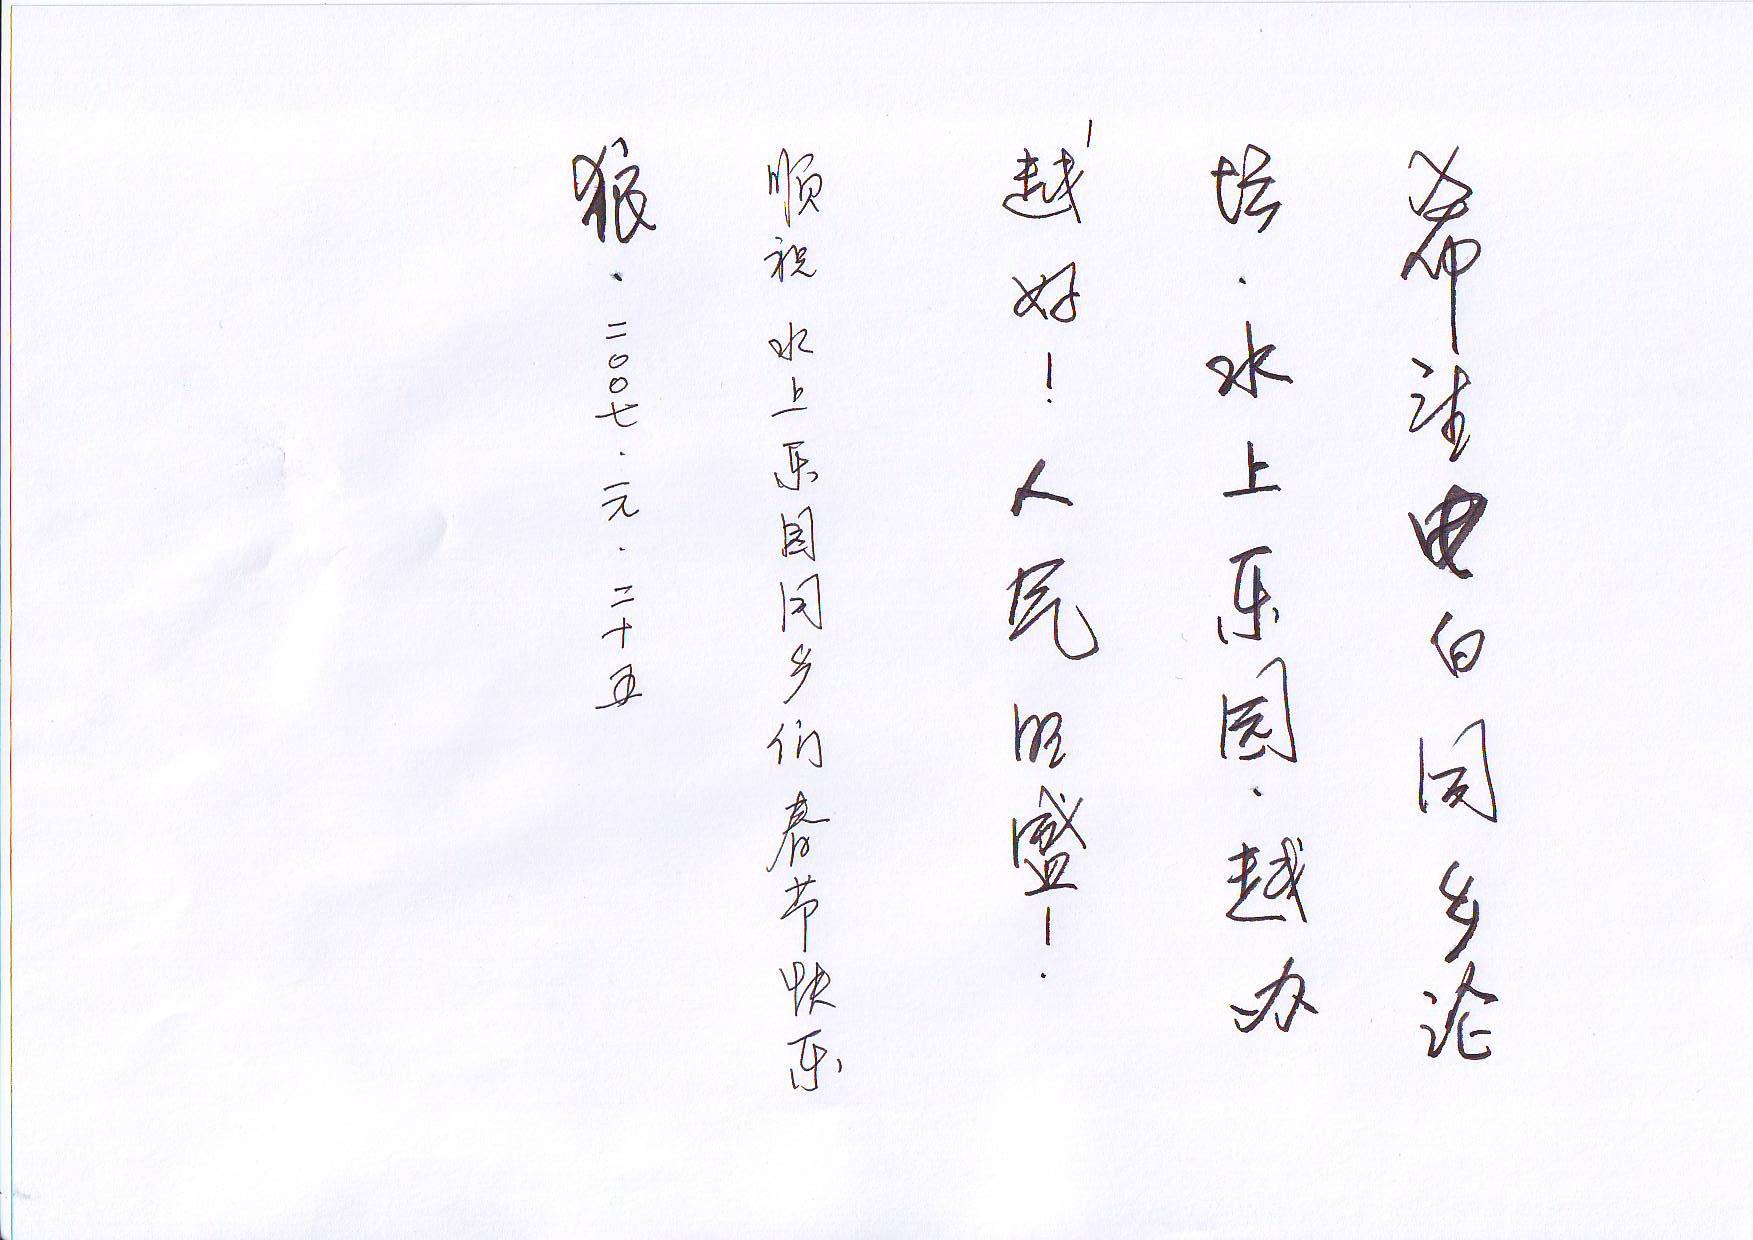 希望电白同乡论
坛·水上乐园·越办
越好!人民旺盛!
顺祝 水上乐园同乡们春节快乐
狼·二〇〇七·元·二十五